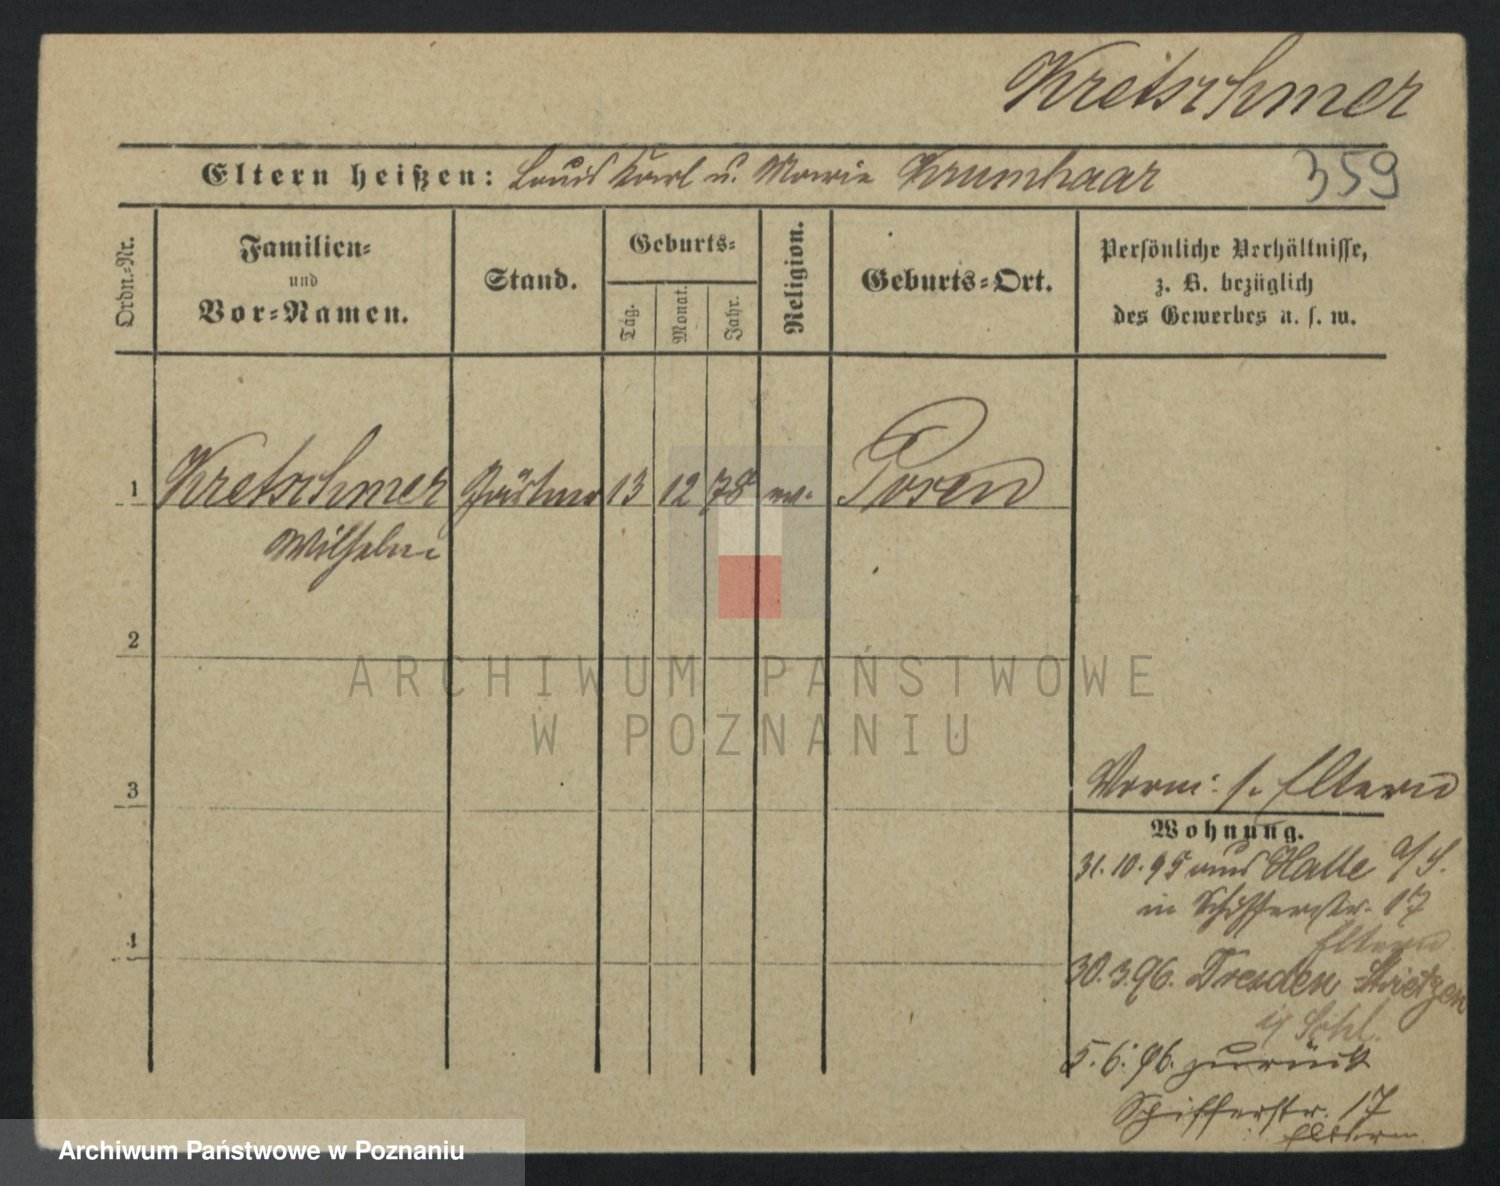 Kretschmer
Eltern heißen: Louis Karl u. Marie Krumhaar
359
Ordn.-Nr.
Familien-
und
Vor-Namen.
Stand.
Geburts-
Tag.
Monat.
Jahr.
Religion.
Geburts-Ort.
Persönliche Verhältnisse,
z. B. bezüglich
des Gewerbes u. s. w.
1 Kretschmer Gärtner 13 12 78 ev. Posen
Wilhelm
2
ARCHIWUM PAŃSTWOWE
W POZNANIU
3
Vorm: s. Eltern
Wohnung.
31.10.95 aus Halle a/S.
in Schifferstr. 17
Eltern
4
30.3.96. Dresden
5.6.96. zurück
Schifferstr. 17
Eltern
Archiwum Państwowe w Poznaniu